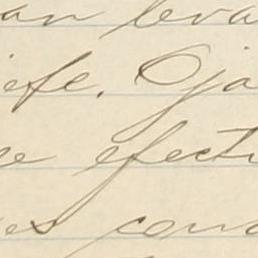 an leva
efe. Oja
se efectu
es cond